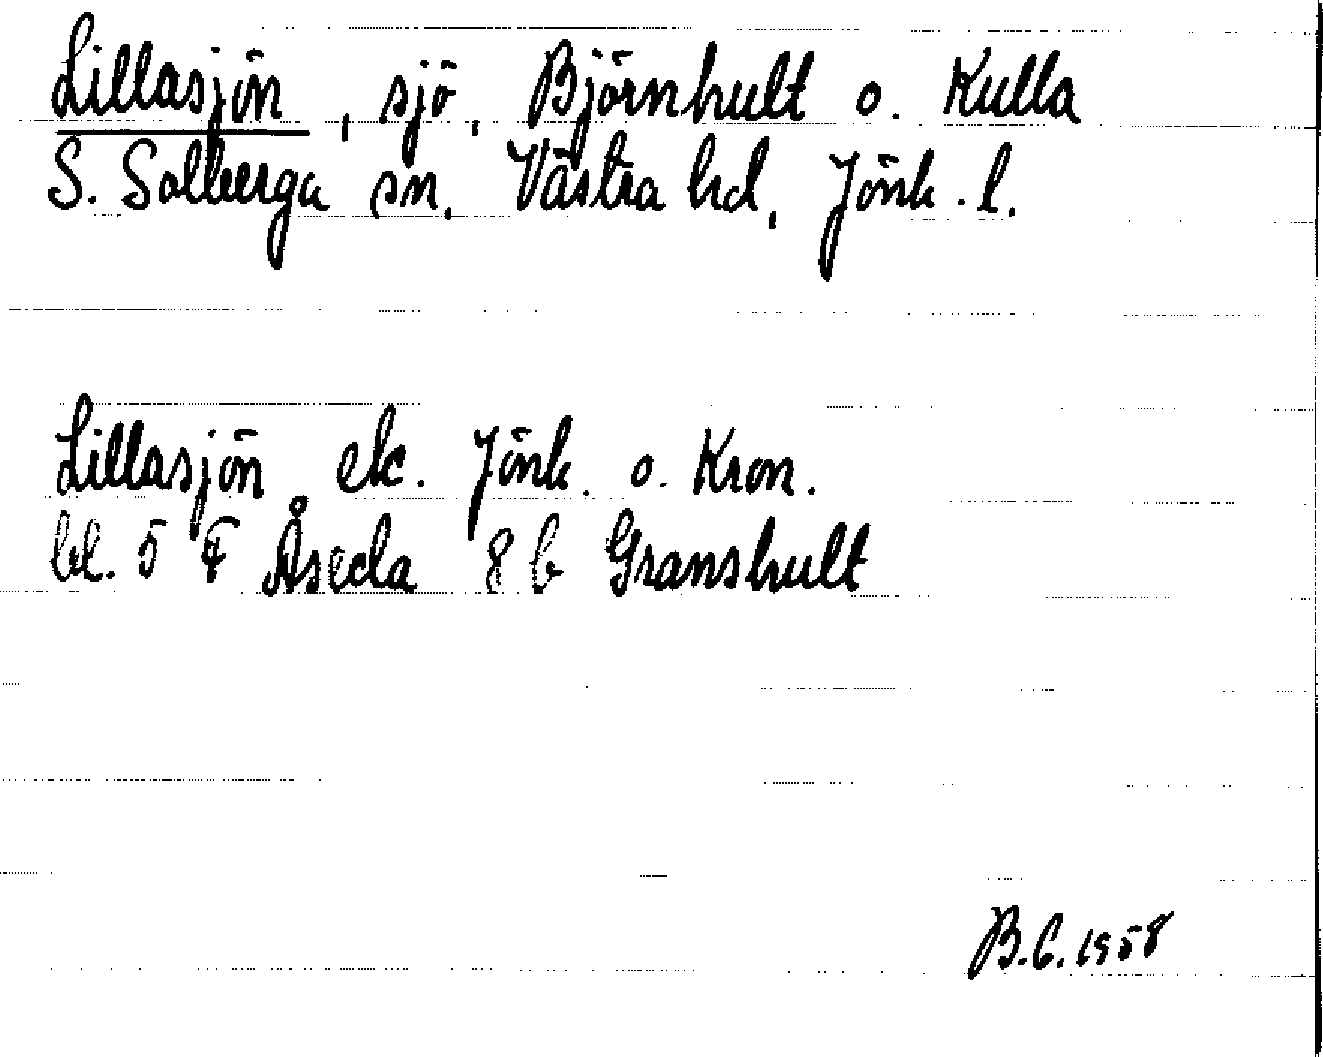 Lillasjön, sjö, Björnhult o. Kulla
S. Solberga sn, Västra hd, Jönk. l.
Lillasjön ek. Jönk. o. Kron.
bl. 5 F Åseda 8 b Granshult
B.C. 1958